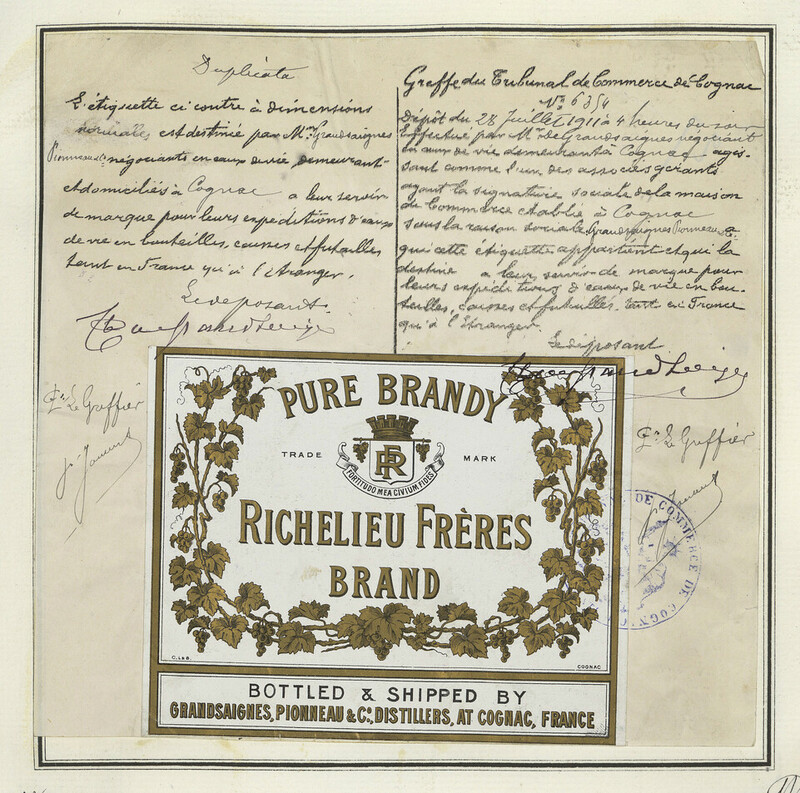 Duplicata
L'étiquette ci contre à dimensions
normales est destinée par Mrs Grandsaignes
Pionneau & Cie négociants en eaux de vie demeurant
et domiciliés à Cognac à leur servir
de marque pour leurs expéditions d'eaux
de vie en bouteilles, caisses et futailles
tant en France qu'à l'étranger.
Le déposant.
Pr Le Greffier
Greffe du Tribunal de Commerce de Cognac
No 6354
Dépôt du 28 Juillet 1911 à 4 heures du soir
Effectué par Mr De Grandsaignes négociant
en eaux de vie demeurant à Cognac agis-
sant comme l'un des associés gérants
ayant la signature sociale de la maison
de Commerce établie à Cognac
sous la raison sociale Grandsaignes Pionneau & Cie
qui cette étiquette appartient et qui la
destine à leur servir de marque pour
leurs expéditions d'eaux de vie en bou-
teilles, caisses et futailles tant en France
qu'à l'Etranger.
Le déposant
Pr Le Greffier
PURE BRANDY
TRADE MARK
FR
FORTITUDO MEA CIVIUM FIDES
RICHELIEU FRÈRES
BRAND
C. L & B.
COGNAC
BOTTLED & SHIPPED BY
GRANDSAIGNES, PIONNEAU & Co, DISTILLERS, AT COGNAC, FRANCE
DE COMMERCE DE COGN